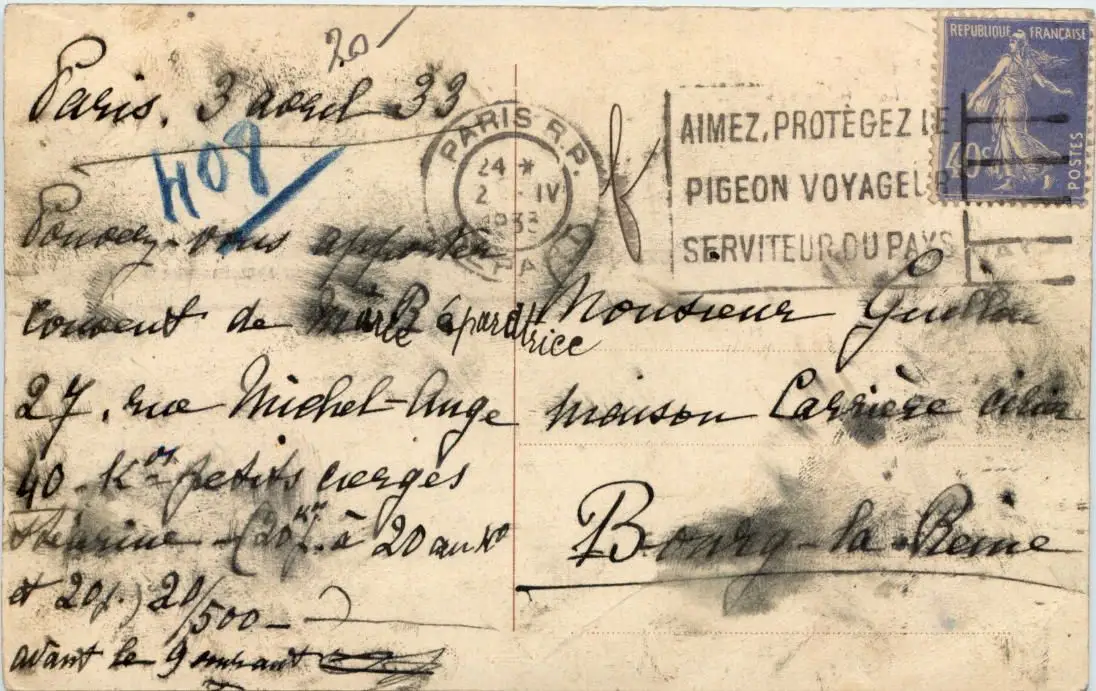 20
Paris. 3 avril 33
408
Pouvez-vous apporter
couvent de Marie Réparatrice
27, rue Michel-Ange
40 Kos petits cierges
Stéarine - (20 à 20 au Ko
et 20 20/500 -
avant le 9 courant
PARIS R.P.
24 *
2 - IV
1933
AIMEZ, PROTÈGEZ LE
PIGEON VOYAGEUR
SERVITEUR DU PAYS
REPUBLIQUE FRANÇAISE
40c
POSTES
Monsieur
maison Carrière
Bourg-la-Reine